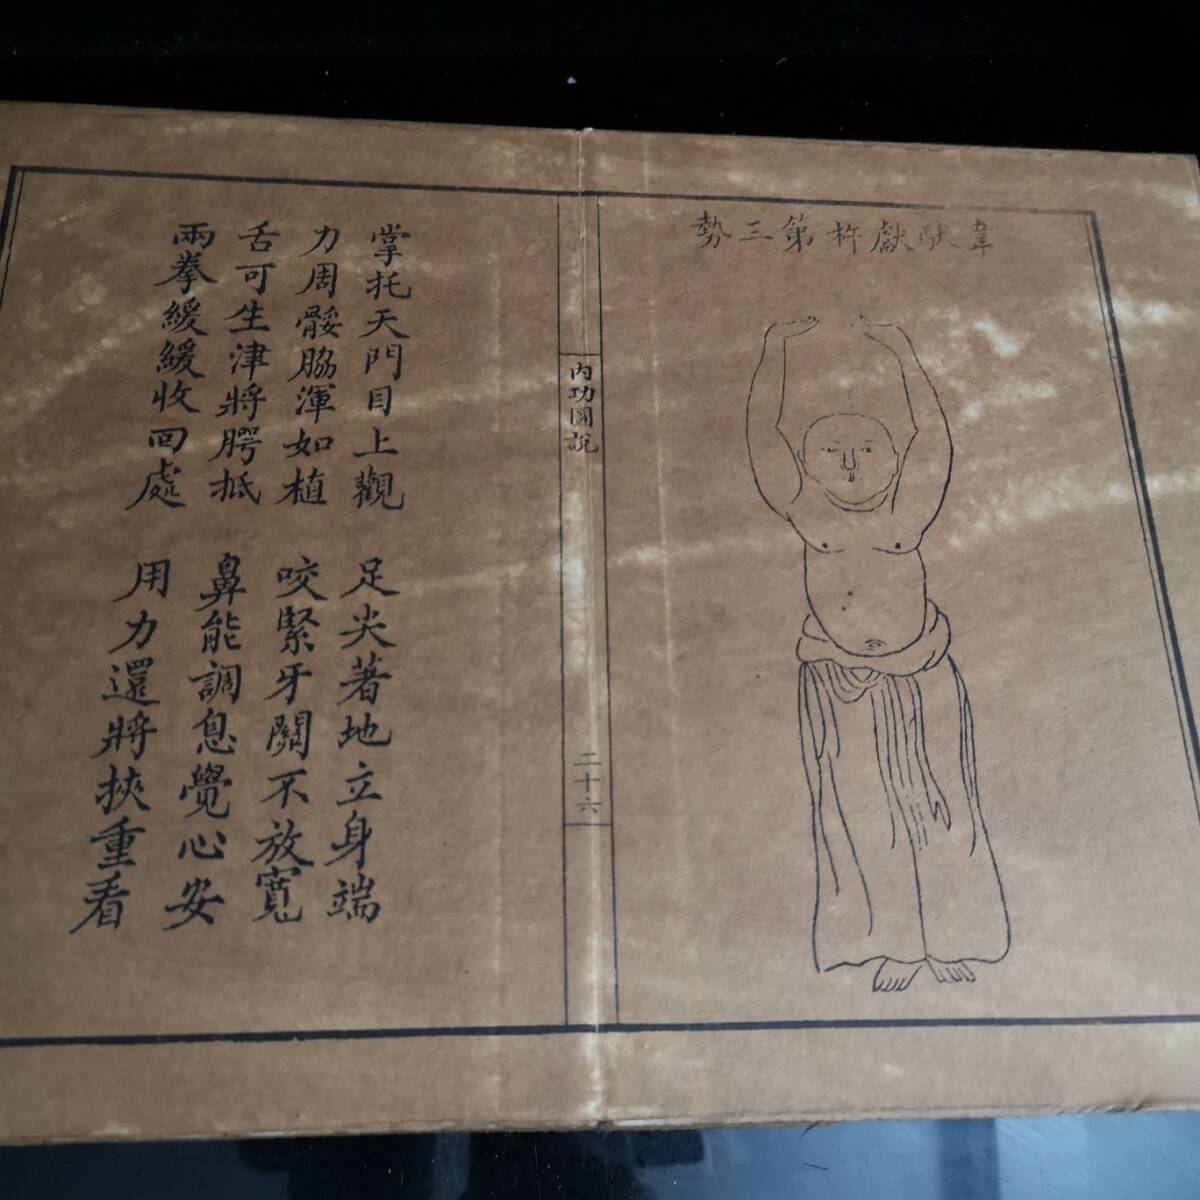 韋馱獻杵第三勢
內功圖說
二十六
掌托天門目上觀
足尖著地立身端
力周骽脇渾如植
咬緊牙關不放寬
舌可生津將腭抵
鼻能調息覺心安
兩拳緩緩收回處
用力還將挾重看